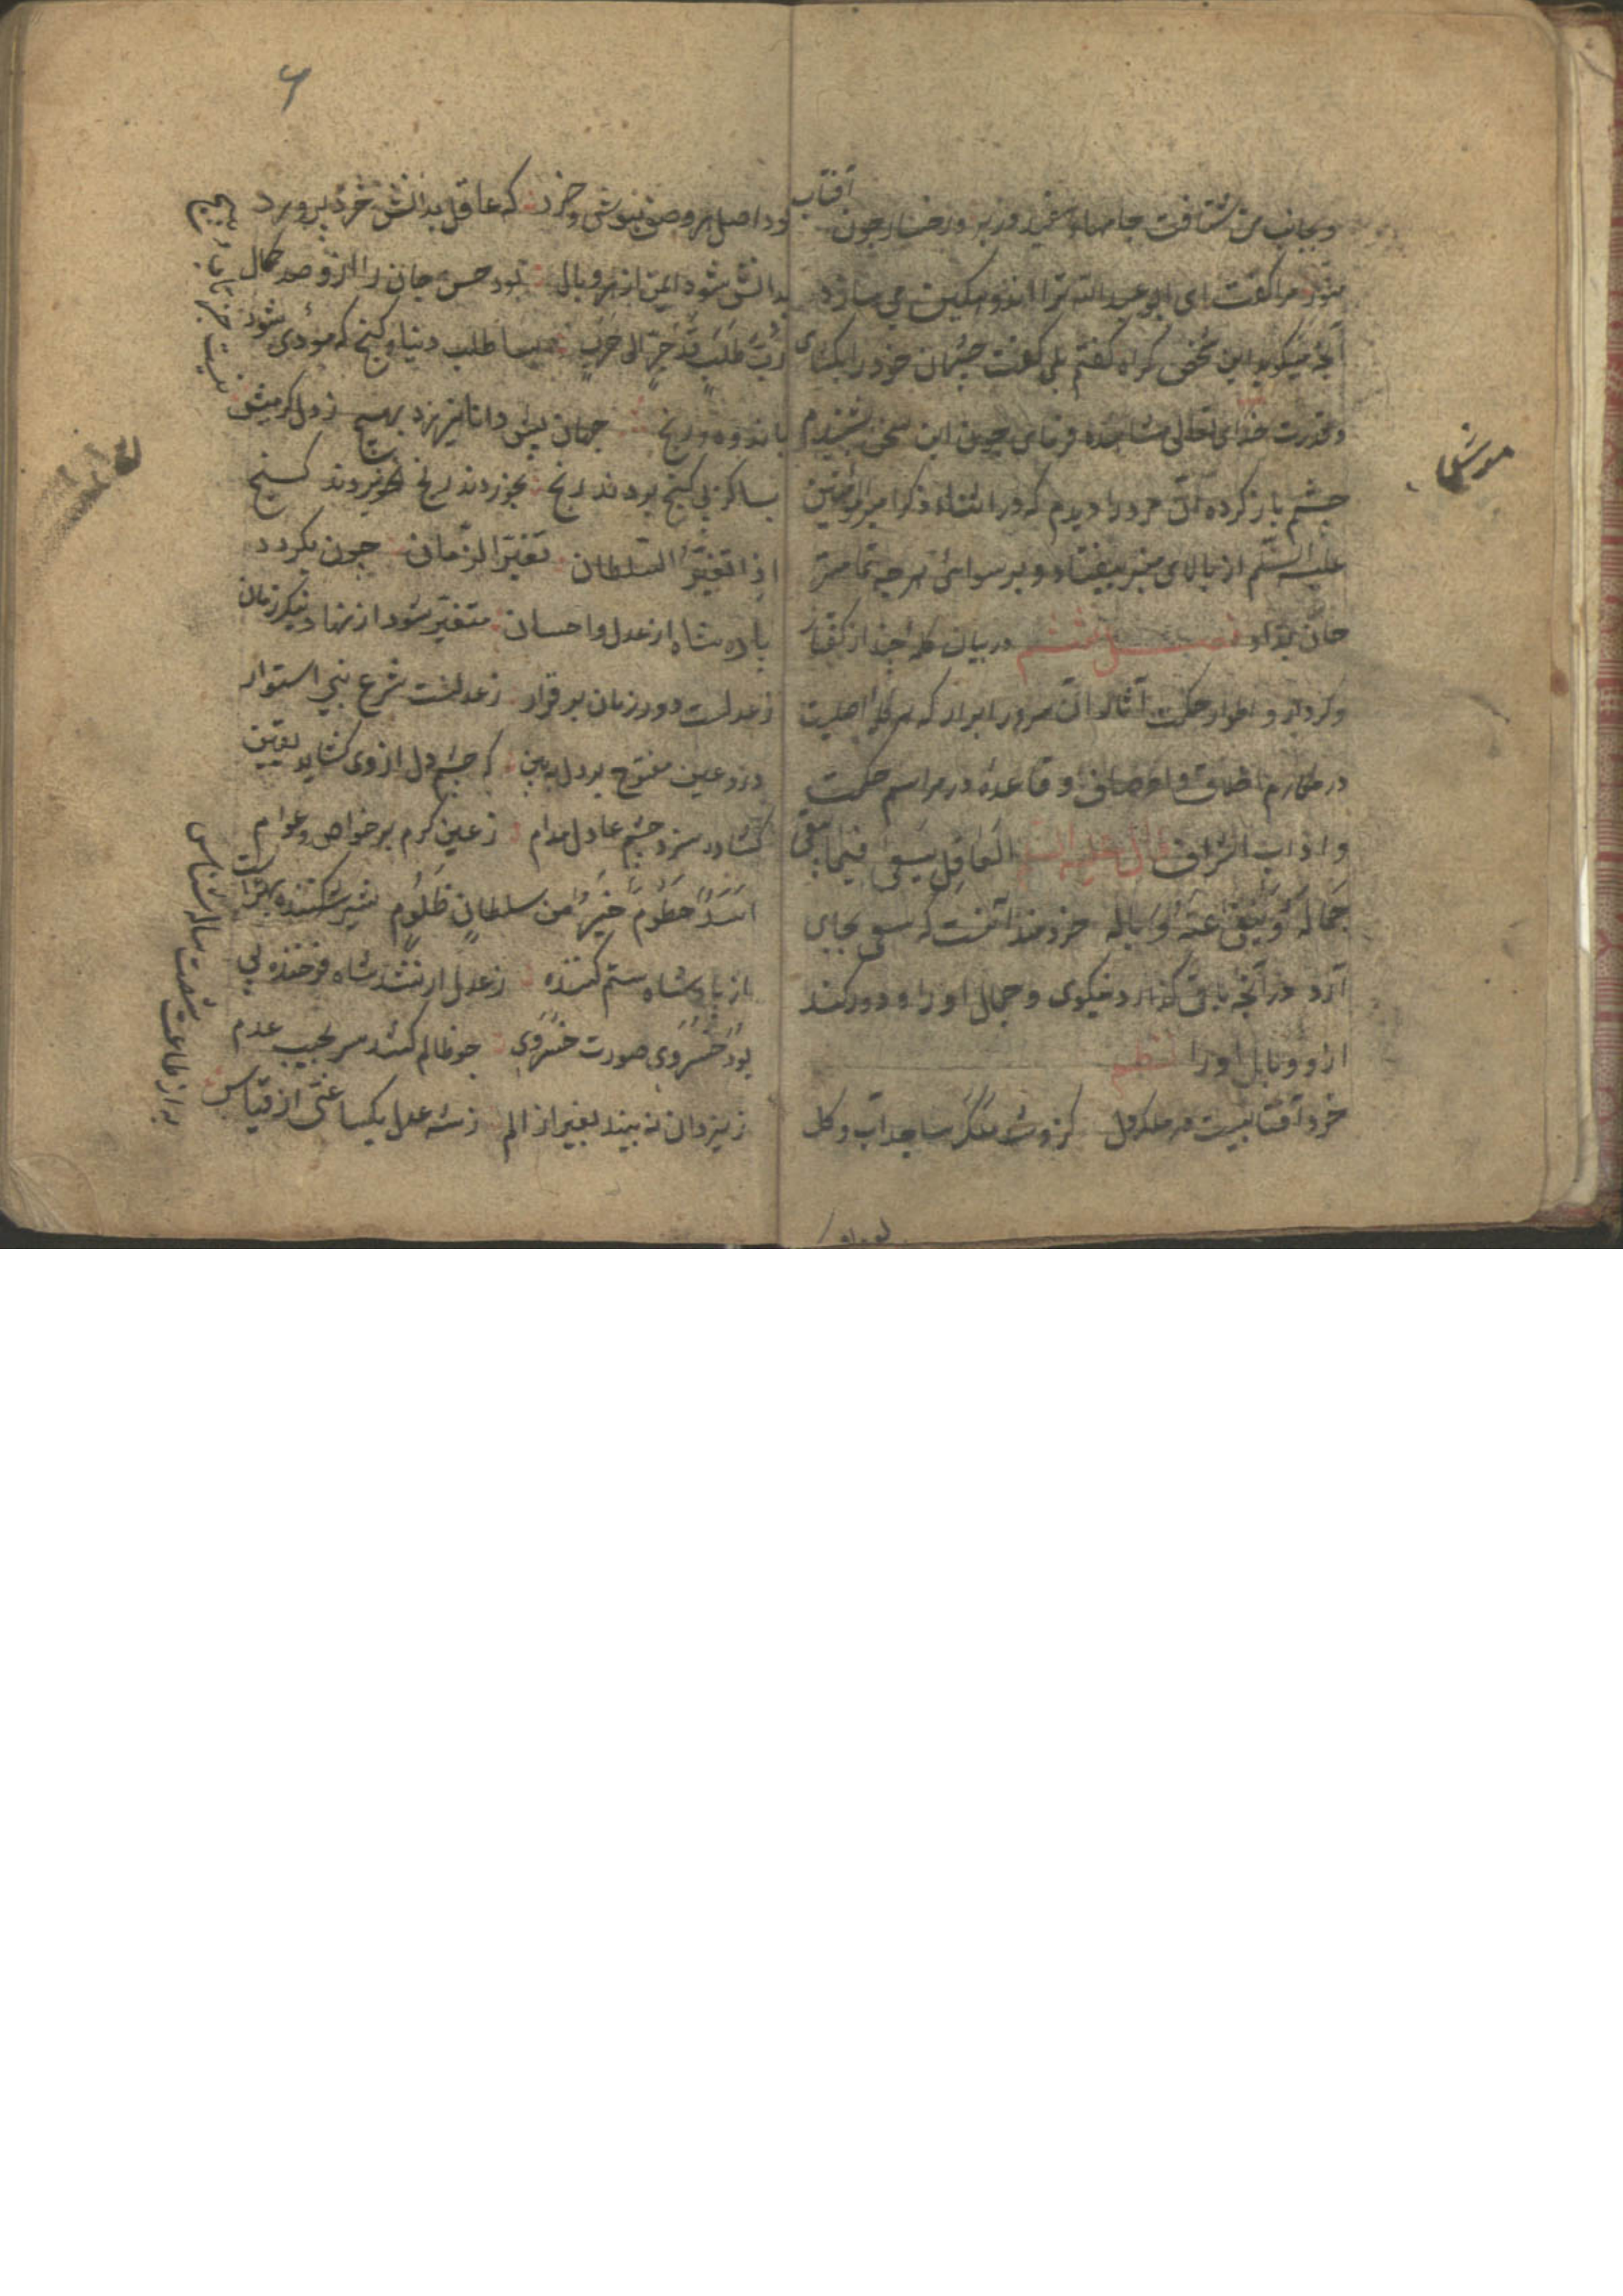 وبجانب من شتافت جامها سفید در بر و رخسار چون آفتاب
منور مرا گفت ای ابو عبد الله ترا اندوهکین می سازد
آنچه میکوید این شخص کفتم بلی کفت چشمان خود را بکشای
وقدرت خدای تعالی مشاهده فرمای چون این سخن شنیدم
چشم باز کرده آن مرد را دیدم که در اثناء ذکر امیر المؤمنین
علیه السلم از بالای منبر بیفتاد و برسوائی هرچه تمامتر
جان بداد فصل در بیان کلمۀ چند از کفتار
وکردار و اطوار حکمت آثار آن سرور ابرار که هر کلمه اصلیست
در مکارم اخلاق و اوصاف و قاعده در مراسم حکمت
واداب اشراف قال علیه السلم العاقل یسعی فیما یبقی
جماله وینفی عنه وباله خردمند آنست که سعی بجای
آرد در آنچه باقی کذارد نیکوی وجمال او را و دور کند
ازو وبال او را نظم
خرد آفتابیست در ملک دل کزو شد ملک ساجد آب وکل
موسلی
۶
بود اصل هر وصف نیوشی وخرد که عاقل بدانش خرد پرورد
بدانش شود ایمن از هر وبال بود حسن جان را ازو صد کمال
رب طلب قد جر الی حرب بسا طلب دنیا وکنج که مؤدی شود
باندوه ورنج جهان پیش دانا نیرزد بهیچ ز دل کر
نیست جز تاب پیچ
بسا کز پی کنج بردند رنج بخوردند رنج نخوردند کنج
اذا تغیر السلطان تغیر الزمان چون بکردد
پادشاه از عدل واحسان متغیر شود از نهاد نیک زمان
ز عدلست دور زمان برقرار ز عدلست شرع نبی استوار
درو عین مفتوح بر دل ببین که چشم دل از وی کشاید یقین
کشاده سزد چشم عادل مدام ز عین کرم بر خواص وعوام
اسد حطوم خیر من سلطان ظلوم شیر شکننده بهتر است
از پادشاه ستم کننده ز عدل ار نشد شاه فرخنده پی
بود خسروی صورت خسروی چو ظالم کشد سر بجیب عدم
ز یزدان نه بیند بغیر از الم ز شه عدل یکساعتی از قیاس
به از طاعت شصت ساله شناس